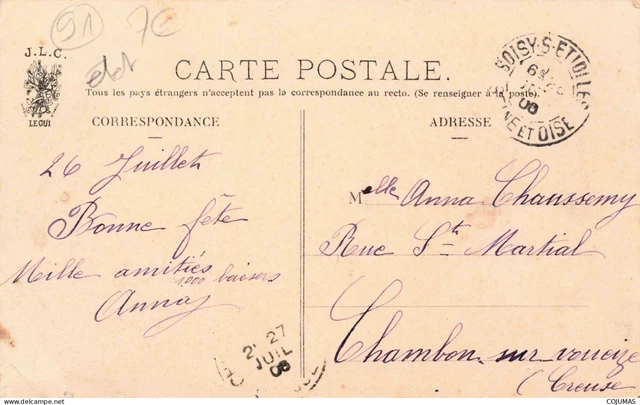 91 7€
J. L. C.
LE GUI
CARTE POSTALE.
Tous les pays étrangers n'acceptent pas la correspondance au recto. (Se renseigner à la poste).
CORRESPONDANCE
ADRESSE
SOISY-S-ETIOLLES
ET OISE
26 Juillet
Bonne fête
Mille amitiés
1,000 baisers
Anna
Melle Anna Chaussemy
Rue St Martial
Chambon sur voueize
(Creuse
27
JUIL
06
COJUMAS